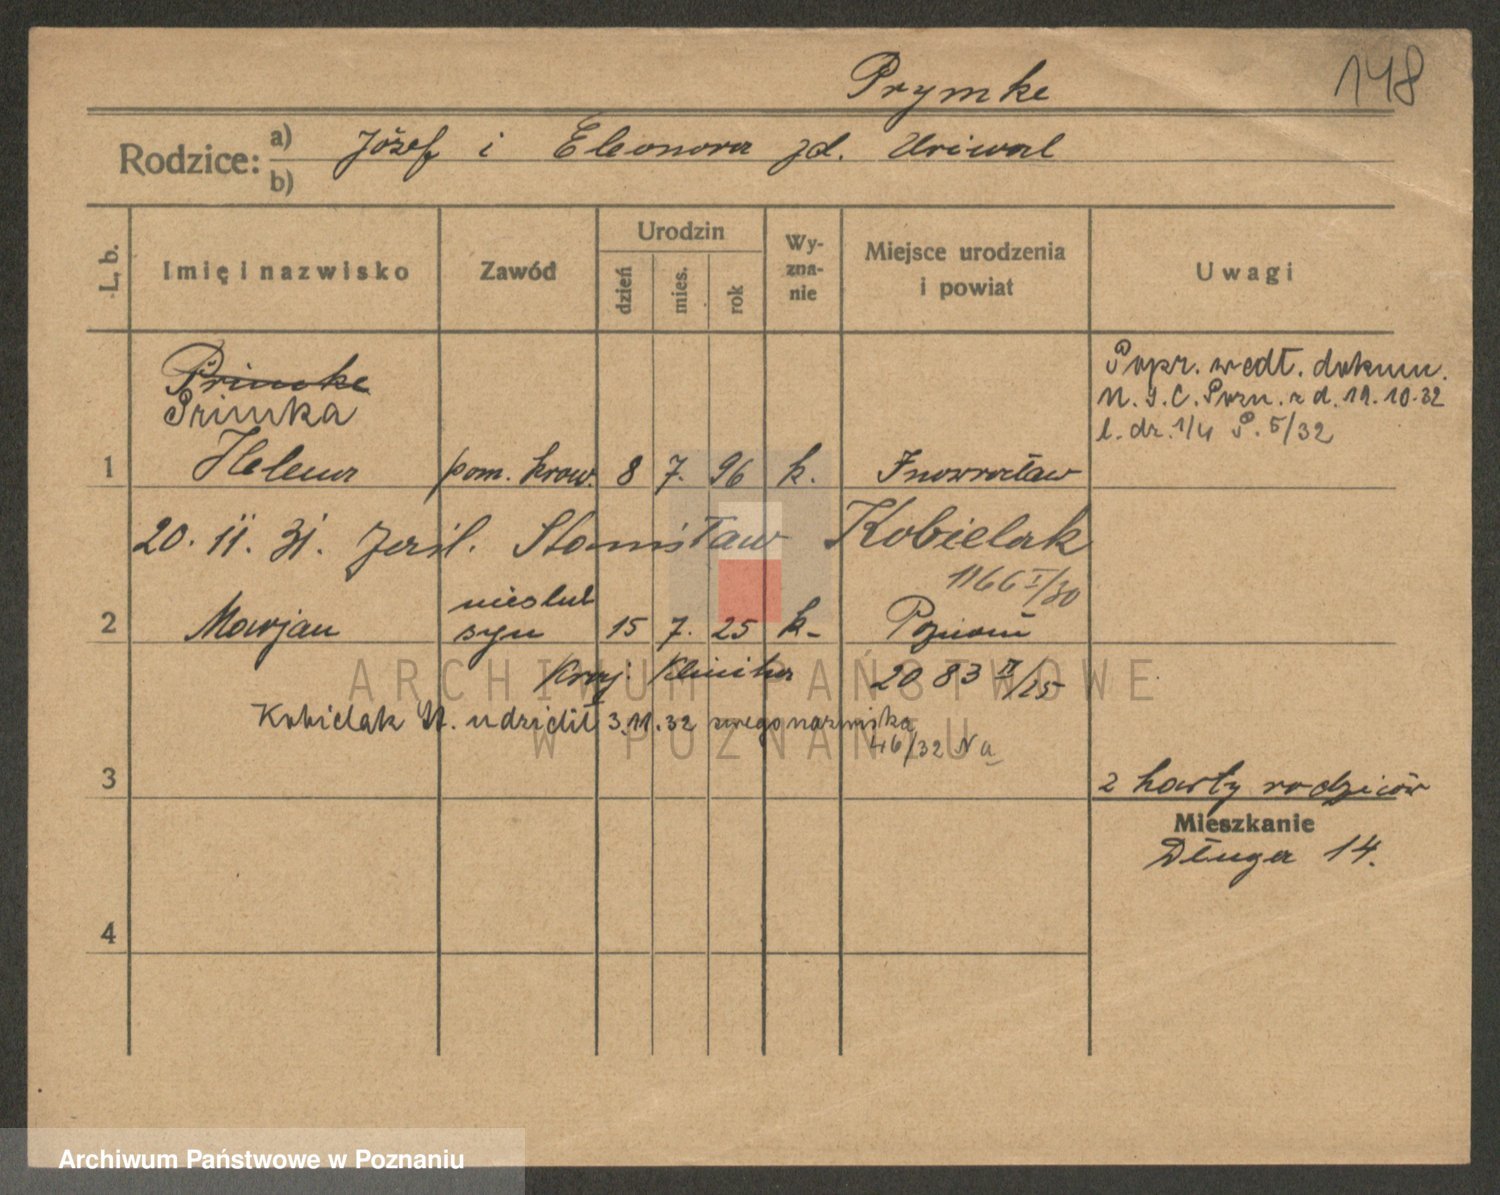 Prymke
148
Rodzice: a) Józef i Eleonora zd.
b)
L. b.
Imię i nazwisko
Zawód
Urodzin
dzień
mies.
rok
Wy-
zna-
nie
Miejsce urodzenia
i powiat
Uwagi
Primke
Primka
Popr. wedł. dokum.
U. S. C. Pozn. z d. 19.10.32
l. dz. 1/4 P. 5/32
1 Helena pom. kraw. 8 7. 96 k. Inowrocław
20. 11. 31. Stanisław Kobielak
1166 I/30
nieślub
2 Marjan syn 15 7. 25 k. Poznań
Kraj. Klinika 2083 IV/25
Kobielak St. udzielił 3.11.32 swego nazwiska
46/32 Na
3
2 karty rodziców
Mieszkanie
Długa 14.
4
ARCHIWUM PAŃSTWOWE
W POZNANIU
Archiwum Państwowe w Poznaniu